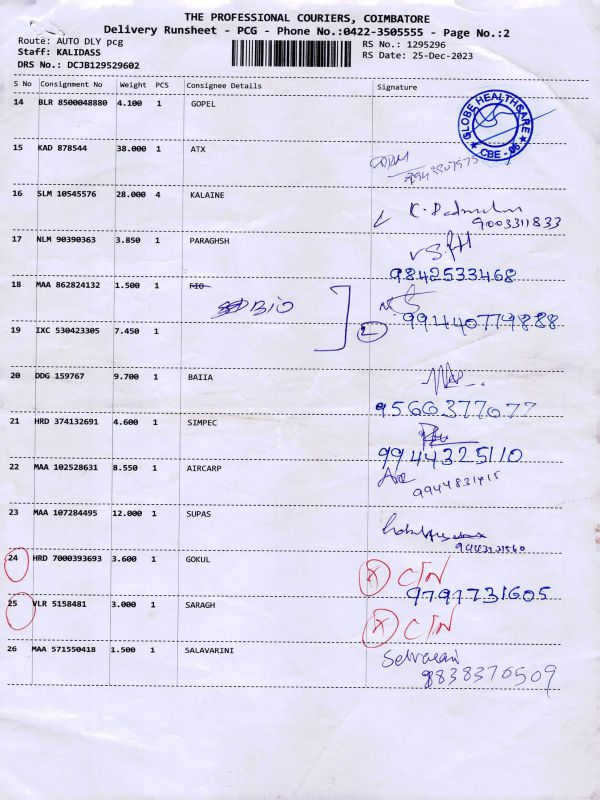 THE PROFESSIONAL COURIERS, COIMBATORE
Delivery Runsheet - PCG - Phone No.:0422-3505555 - Page No.:2
Route: AUTO DLY pcg RS No.: 1295296
Staff: KALIDASS RS Date: 25-Dec-2023
DRS No.: DCJB129529602
S No Consignment No Weight PCS Consignee Details Signature
14 BLR 8500048880 4.100 1 GOPEL
GLOBE HEALTHCARE
★ CBE - 06 ★
15 KAD 878544 38.000 1 ATX
16 SLM 10545576 28.000 4 KALAINE
9003311833
17 NLM 90390363 3.850 1 PARAGHSH
9842533468
18 MAA 862824132 1.500 1 BIO
BIO
994440779888
2
19 IXC 530423305 7.450 1
20 DDG 159767 9.700 1 BAIIA
9566377077
21 HRD 374132691 4.600 1 SIMPEC
9944325110
22 MAA 102528631 8.550 1 AIRCARP
23 MAA 107284495 12.000 1 SUPAS
24 HRD 7000393693 3.600 1 GOKUL
X C/N
9797731605
25 VLR 5158481 3.000 1 SARAGH
X C/N
26 MAA 571550418 1.500 1 SALAVARINI
Selvarani
8838370509